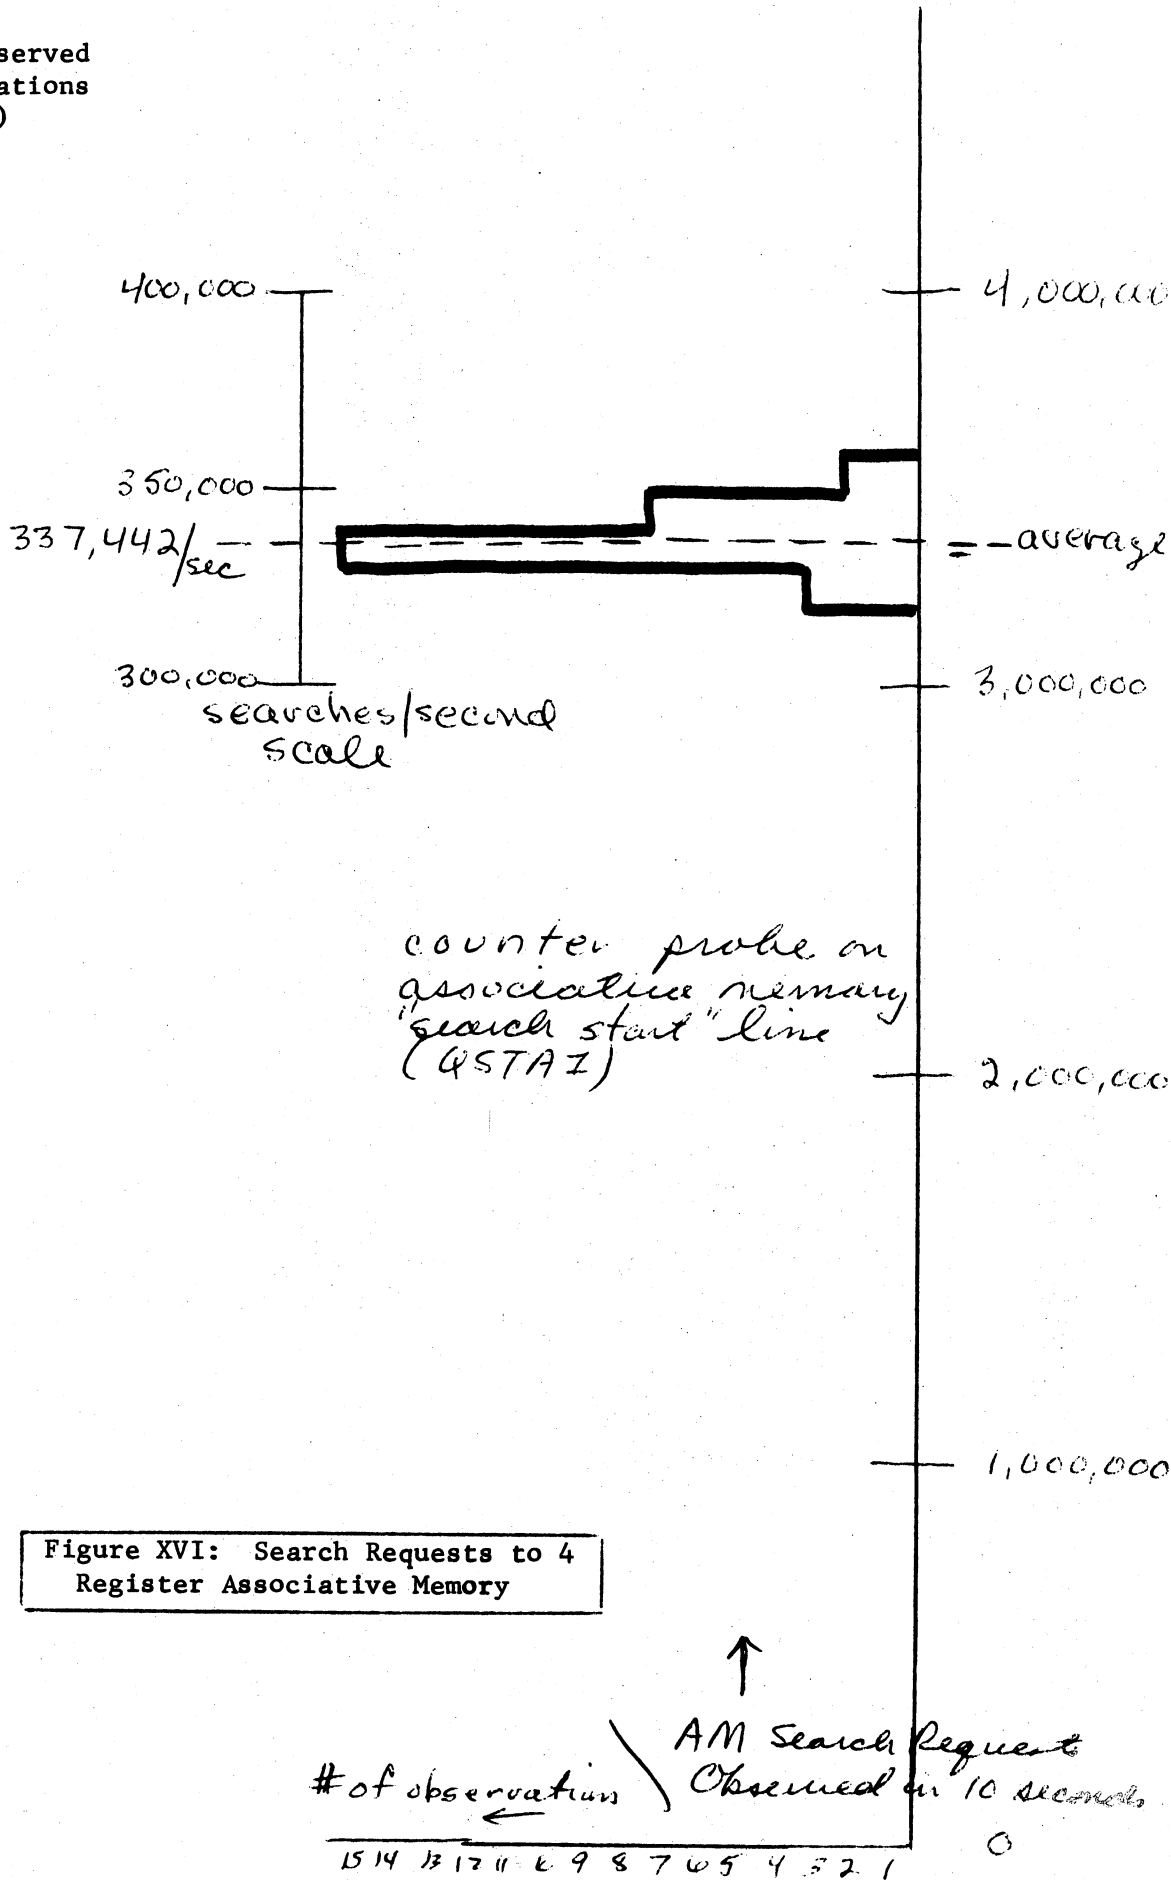 served
ations
)
400,000
4,000,000
350,000
337,442/sec
average
300,000
3,000,000
searches/second
scale
counter probe on
associative memory
"search start" line
(QSTAI)
2,000,000
1,000,000
Figure XVI: Search Requests to 4
Register Associative Memory
AM Search Request
Observed in 10 seconds
# of observations
0
15 14 13 12 11 10 9 8 7 6 5 4 3 2 1